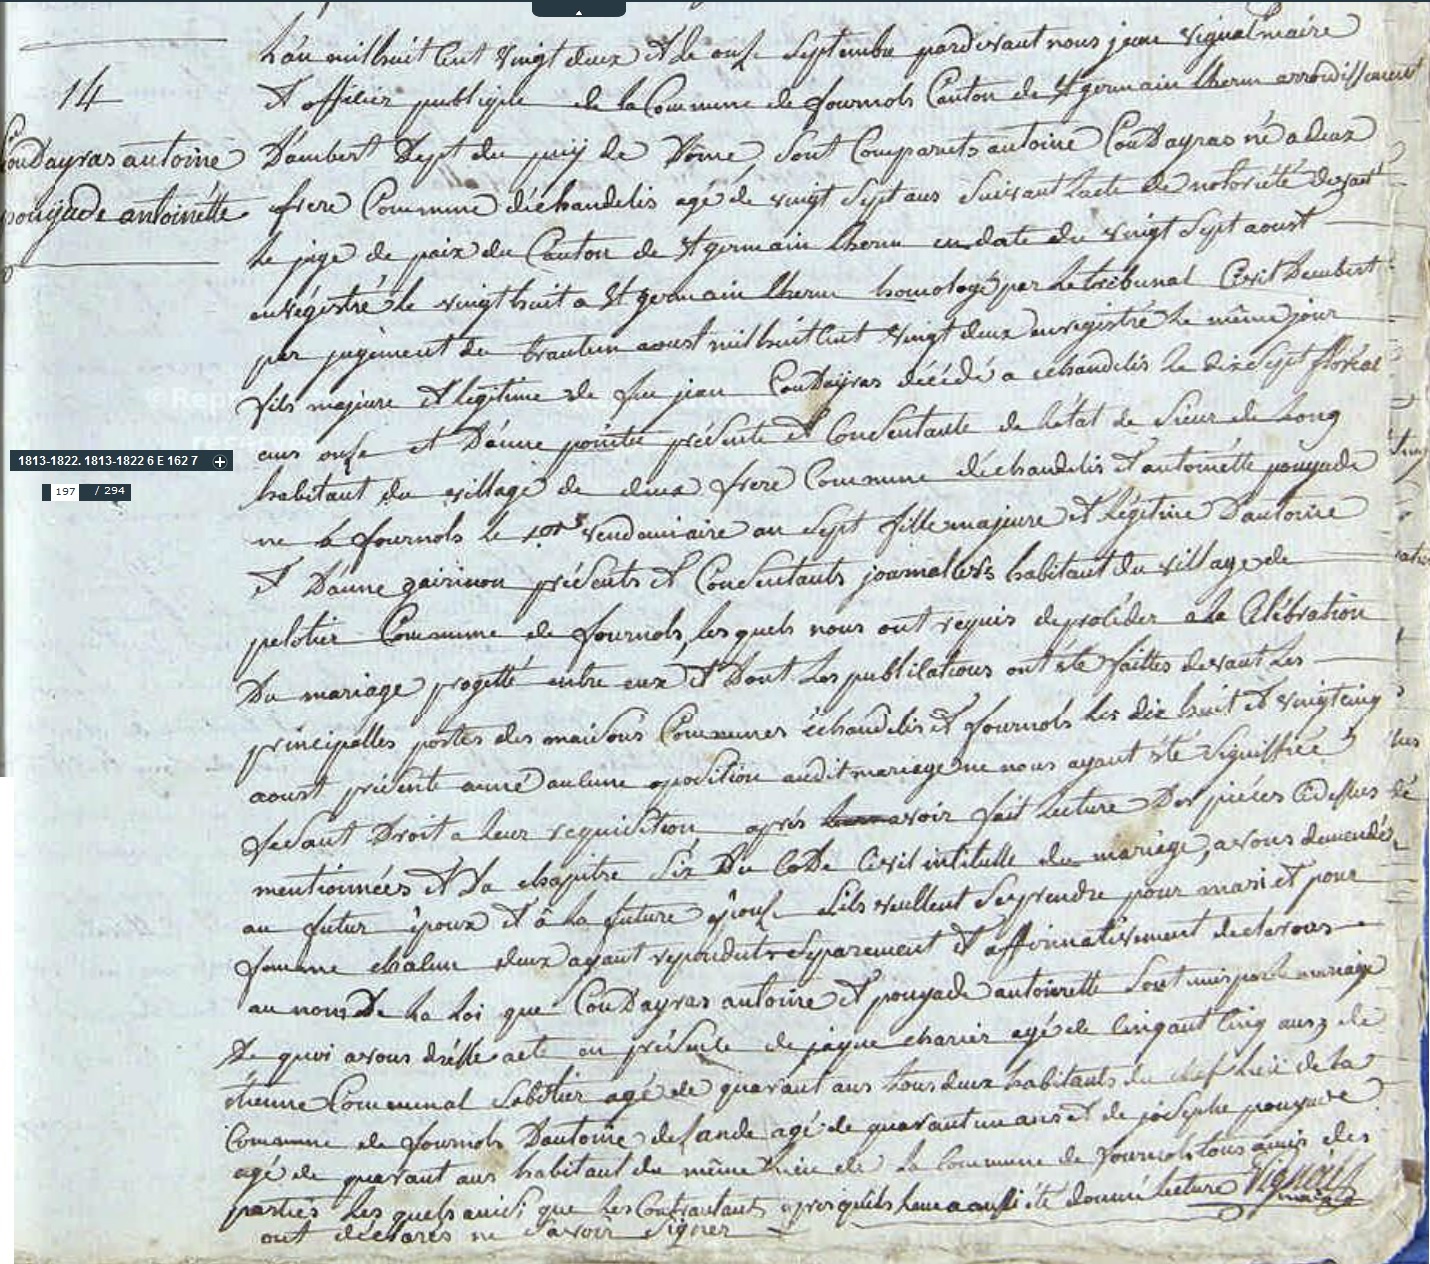 14
Coudayras antoine
pouyade antoinette
L'an mil huit Cent vingt deux et le onse Septembre pardevant nous jean vignal maire
et officier publique de la Commune de fournols Canton de St germain lherm arrondissement
D'ambert Dept du puy de Dôme, Sont Comparuts antoine Coudayras né a deux
frere Commune d'échandelis agé de vingt Sept ans Suivant lacte de notorieté devant
le juge de paix du Canton de St germain lherm en date du vingt Sept aoust
enrégistré le vingt huit a St germain lherm homologé par le tribunal Civil Dembert
par jugement du trantun aoust mil huit Cent vingt deux enregistré le même jour
fils majeure et légitime de feu jean Coudayras décédé a échandelis le dix Sept floréal
ans onse et D'anne pointu présente et Consentante de l'état de Sieur de Long
habitant du village de deux frere Commune déchandelis et antoinette pouyade
ne a fournols le vendemiaire an Sept fille majeure et légitime D'antoine
et D'anne présents et Consentants journaliers habitant du village de
pelotier Commune de fournols, les quels nous ont requis de proceder a la Célébration
Du mariage progetté entre eux et Dont les publications ont été faittes devant les
principalles portes des maisons Communes échandelis et fournols les dix huit et vingt cinq
aoust présente anné aucune oposition audit mariage ne nous ayant été Signiffiée
fesant Droit a leur requisition apres avoir fait lecture Des piéces Cidessus
mentionnées et Du chapitre Six Du Code Civil intitulle du mariage, avons demendé
au futur époux et à la future épouse Sils veullent Se prendre pour mari et pour
femme chacun deux ayant repondut séparement et affirmativement declarons
au nom De la Loi que Coudayras antoine et pouyade antoinette Sont unis par le mariage
De quoi avons drésse acte en présence de jaque charier agé de Cinqant Cinq ans de
étienne Communal Sabotier agé de quarant ans tous deux habitants du chef lieu de la
Commune de fournols D'antoine delande agé de quarant un ans et de josephe pouyade
agé de quarant ans habitant du même lieu de la Commune de fournols tous amis des
parties les quels ainsi que les Contractants apres quils leur a aussi été donné lecture Vignal
maire
ont déclarés ne Savoir Signer
1813-1822. 1813-1822 6 E 162 7
197 / 294